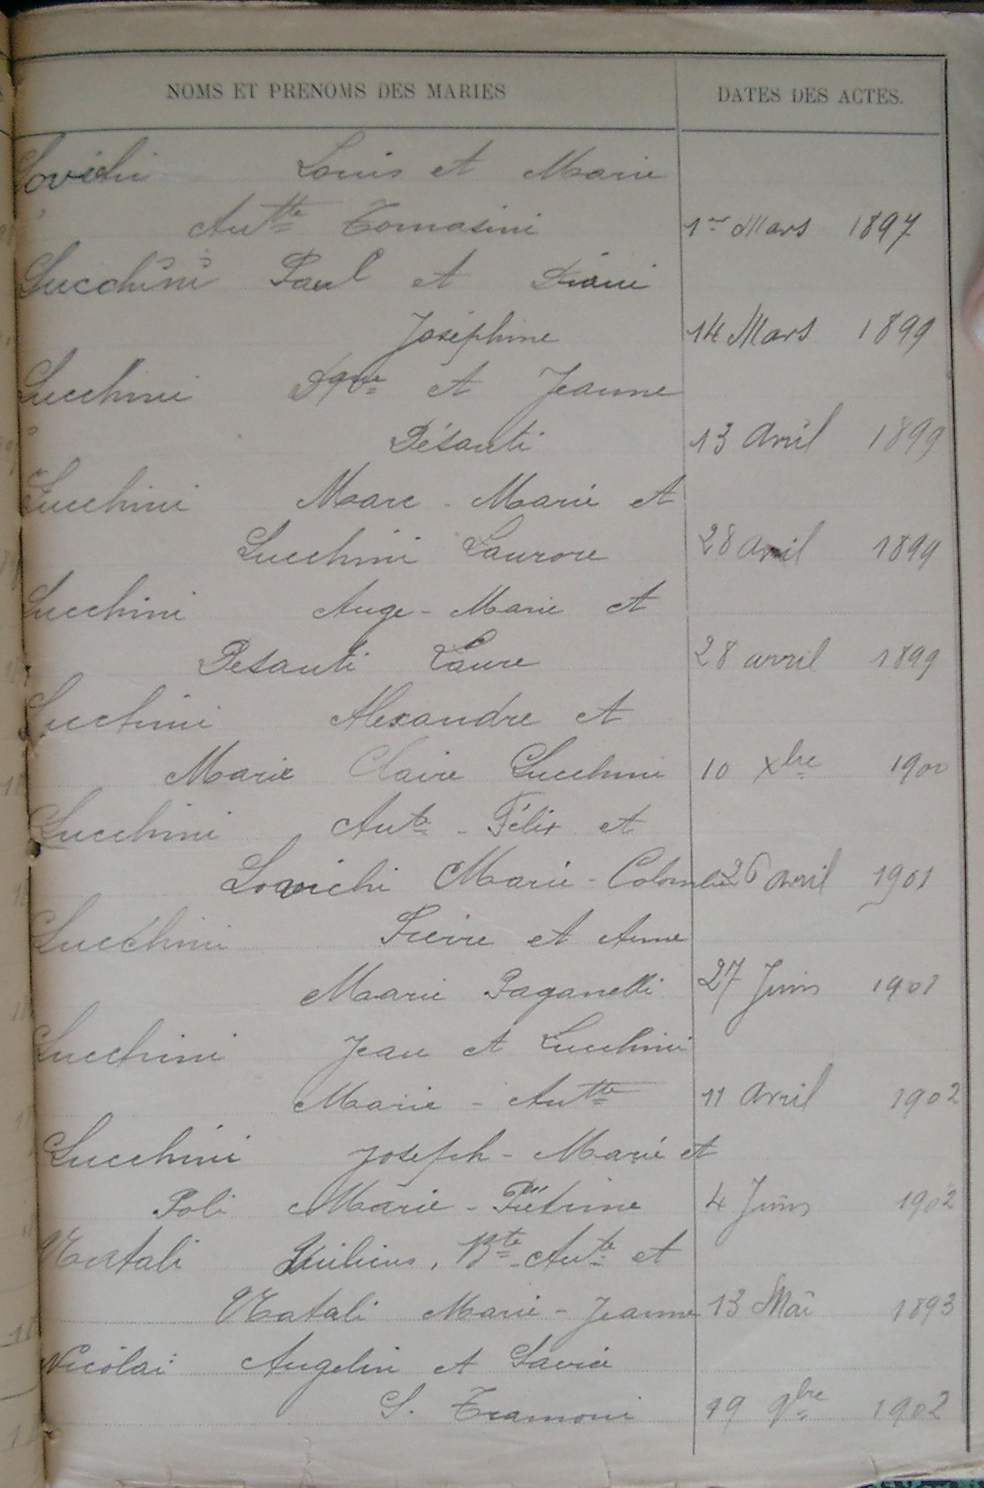 NOMS ET PRENOMS DES MARIES
DATES DES ACTES.
Lovichi Louis et Marie
Antte Tomasini 1er Mars 1897
Lucchini Paul et Diani
Joséphine 14 Mars 1899
Lucchini Dque et Jeanne
Désanti 13 Avril 1899
Lucchini Marc - Marie et
Lucchini Laurore 28 avril 1899
Lucchini Ange - Marie et
Desanti Laure 28 avril 1899
Lucchini Alexandre et
Marie Claire Lucchini 10 xbre 1900
Lucchini Ante - Félix et
Lovichi Marie - Colombe 26 avril 1901
Lucchini Pierre et Anne
Marie Paganelli 27 Juin 1901
Lucchini Jean et Lucchini
Marie - Antte 11 Avril 1902
Lucchini Joseph - Marie et
Poli Marie - Piétrine 4 Juin 1902
Natali Bte Ante et
Natali Marie - Jeanne 13 Mai 1893
Nicolaï Angelin et Savia
S. Tramoni 19 9bre 1902